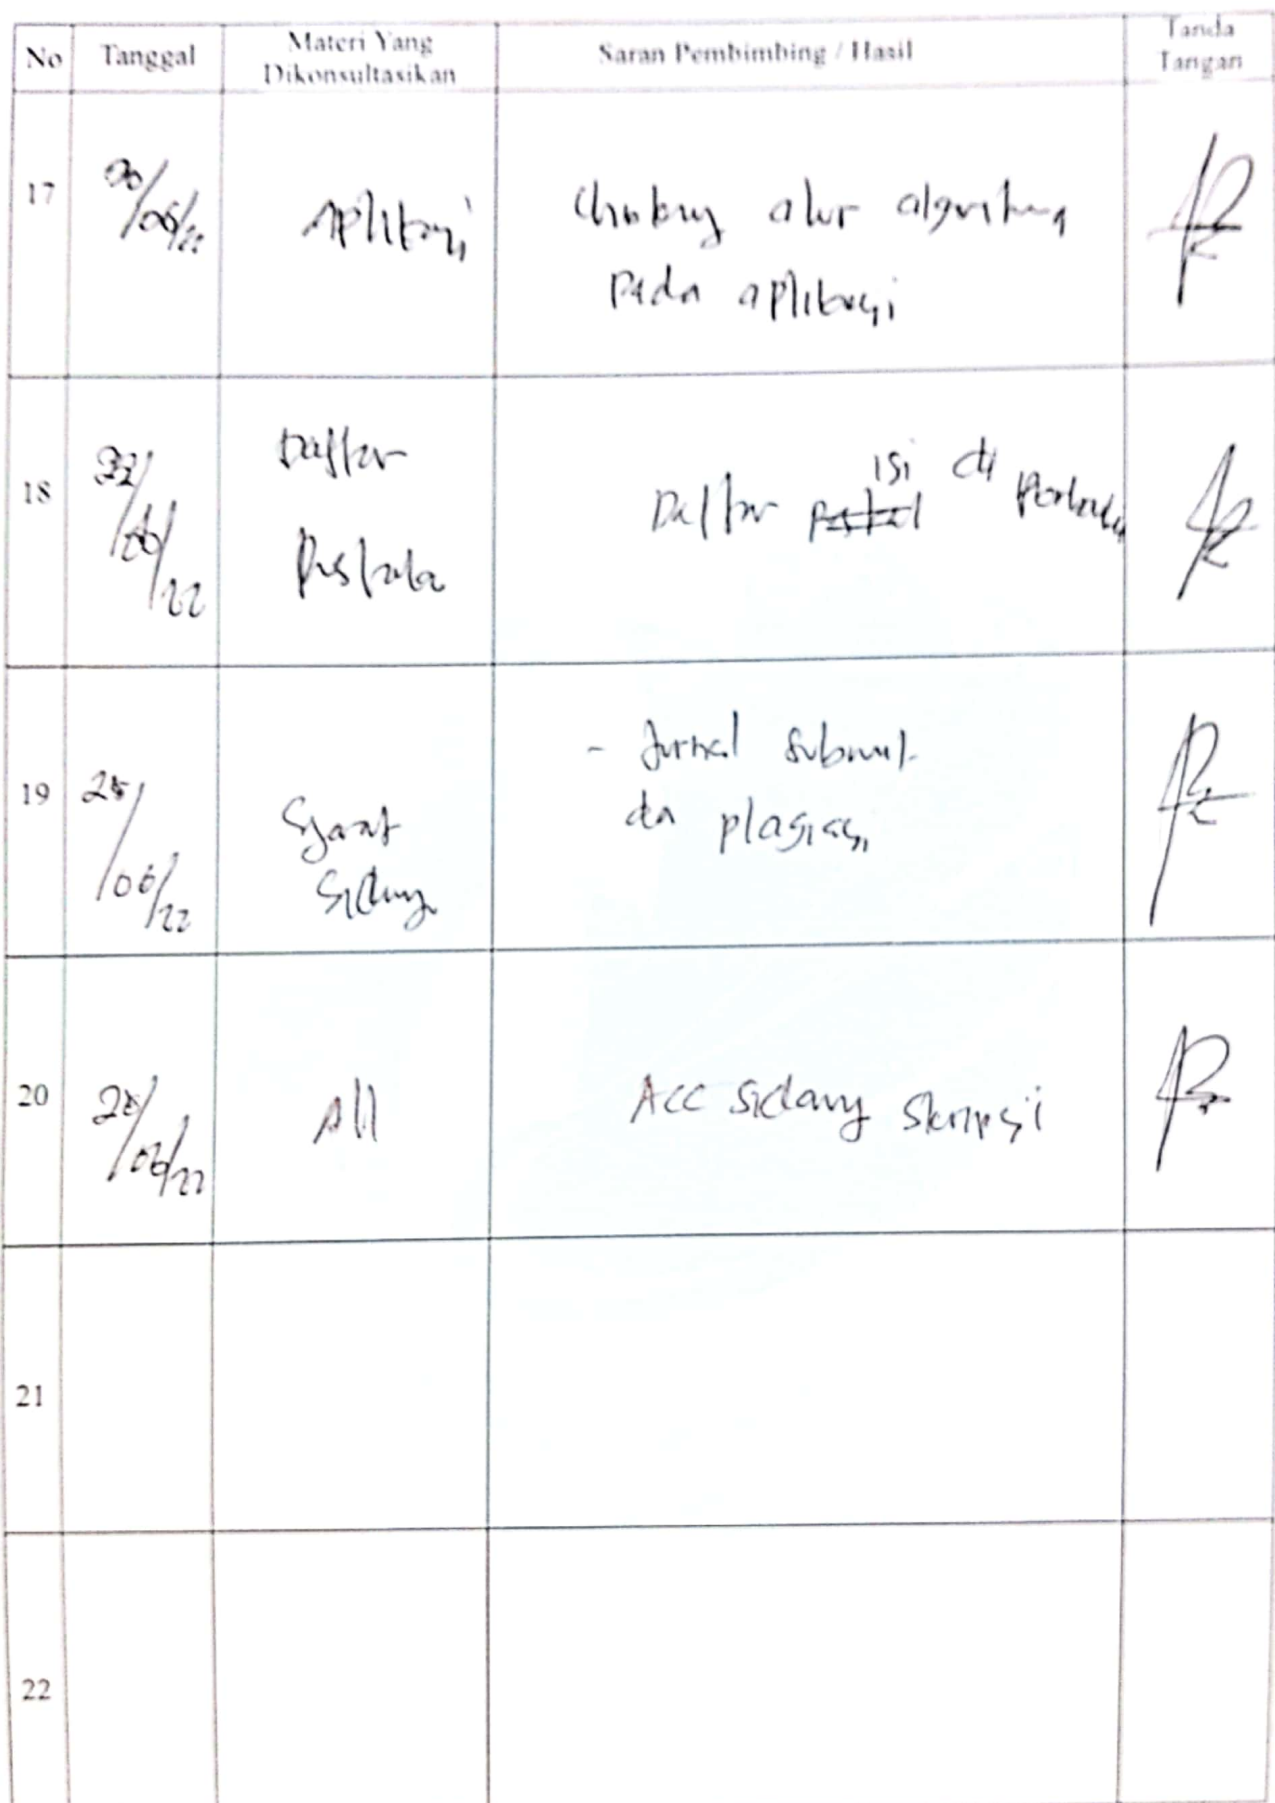 No Tanggal Materi Yang Dikonsultasikan Saran Pembimbing / Hasil Tanda Tangan
17 /06/22 Aplikasi alur algoritma
pada aplikasi
18 22/06/22 Daftar Daftar isi di
Pustaka
19 /06/22 Syarat - Jurnal submit
Sidang dan plagiasi
20 /06/22 All Acc sidang skripsi
21
22